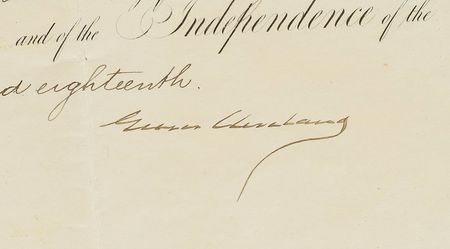 and of the Independence of the
d eighteenth.
Grover Cleveland